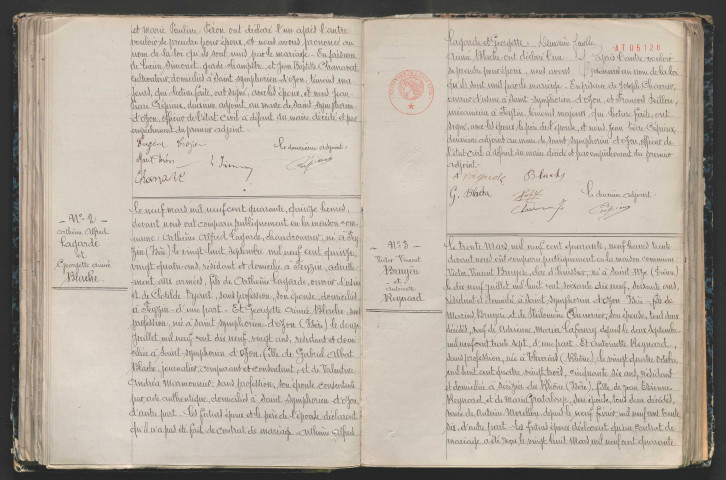 et Marie Pauline Veron ont déclaré l'un après l'autre
vouloir se prendre pour époux, et nous avons prononcé au
nom de la loi qu'ils sont unis par le mariage. En présence
de Lucien Simonet, garde champêtre, et Jean Baptiste Charvat
cultivateur, domiciliés à Saint Symphorien d'Ozon, témoins ma
jeurs, qui lecture faite, ont signé, avec les époux, et nous Jean
Marie Crépieux, deuxième adjoint au maire de Saint Symphorien
d'Ozon, officier de l'état civil à défaut du maire décédé et par
empêchement du premier adjoint.
Le deuxième adjoint
Crépieux
N° 2
Arthème Alfred
Lagarde
et
Georgette Aimée
Blache
Le neuf mars mil neuf cent quarante, quinze heures,
devant nous ont comparu publiquement en la maison com
mune: Arthème Alfred Lagarde, chaudronnier, né à Fey
zin (Isère) le vingt huit septembre mil neuf cent quinze,
vingt quatre ans, résidant et domicilié à Feyzin, actuelle
ment aux armées, fils de Arthème Lagarde, ouvrier d'usine
et de Clotilde sans profession, son épouse, domiciliés
à Feyzin d'une part. Et Georgette Aimée Blache, sans
profession, née à Saint Symphorien d'Ozon (Isère) le douze
juillet mil neuf cent dix neuf, vingt ans, résidant et domi
ciliée à Saint Symphorien d'Ozon, fille de Gabriel Albert
Blache, journalier, comparant et consentant, et de Valentine
Andréa Marmonnier, sans profession, son épouse consentante
par acte authentique, domiciliés à Saint Symphorien d'Ozon
d'autre part. Les futurs époux et le père de l'épouse déclarent
qu'il n'a pas été fait de contrat de mariage. Arthème Alfred
Lagarde et Georgette
AT05126
Aimée Blache ont déclaré l'un après l'autre vouloir
se prendre pour époux, et nous avons prononcé au nom de la loi
qu'ils sont unis par le mariage. En présence de Joseph
ouvrier d'usine à Saint Symphorien d'Ozon, et François
mécanicien à Feyzin, témoins majeurs, qui lecture faite, ont
signé, avec les époux, le père de l'épouse, et nous Jean Marie Crépieux,
deuxième adjoint au maire de Saint Symphorien d'Ozon, officier de
l'état civil à défaut du maire décédé et par empêchement du premier
adjoint.
Blache
G. Blache
Le deuxième adjoint
Crépieux
N° 3
Victor Vincent
Bruyère
et
Antoinette
Reynard
Le trente Mars mil neuf cent quarante, neuf heures trente
devant nous ont comparu publiquement en la maison commune
Victor Vincent Bruyère, né à Saint
le dix neuf juillet mil huit cent soixante dix neuf, soixante ans,
résidant et domicilié à Saint Symphorien d'Ozon Isère fils de
Marius Bruyère et de Philomène son épouse, tous deux
décédés, veuf de Adrienne Maria depuis le deux septembre
mil neuf cent trente sept, d'une part. Et Antoinette Reynard,
sans profession, née à (Rhône), le vingt quatre octobre
mil huit cent quatre vingt trois, cinquante six ans, résidant
et domiciliée à Sérézin du Rhône (Isère), fille de Jean Etienne
Reynard, et de Marie son épouse, tous deux décédés,
veuve de Antoine depuis le neuf février mil neuf cent trente
six, d'autre part. Les futurs époux déclarent qu'un contrat de
mariage a été reçu le vingt huit Mars mil neuf cent quarante